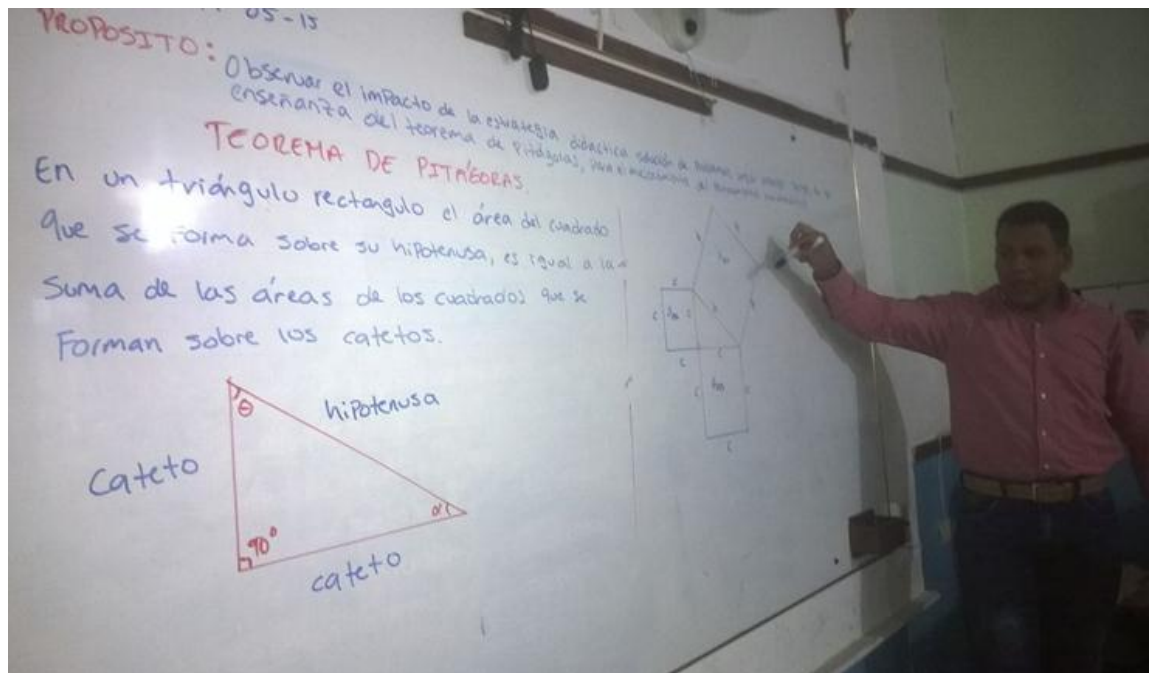 05-15
PROPOSITO:
Observar el impacto de la estrategia didáctica solución de
enseñanza del teorema de Pitágoras, para el
TEOREMA DE PITÁGORAS.
En un triángulo rectangulo el área del cuadrado
que se forma sobre su hipotenusa, es igual a la
Suma de las áreas de los cuadrados que se
Forman sobre los catetos.
θ
hipotenusa
cateto
α
90°
cateto
h
h
h
h
c
c
c
c
c
c
c
c